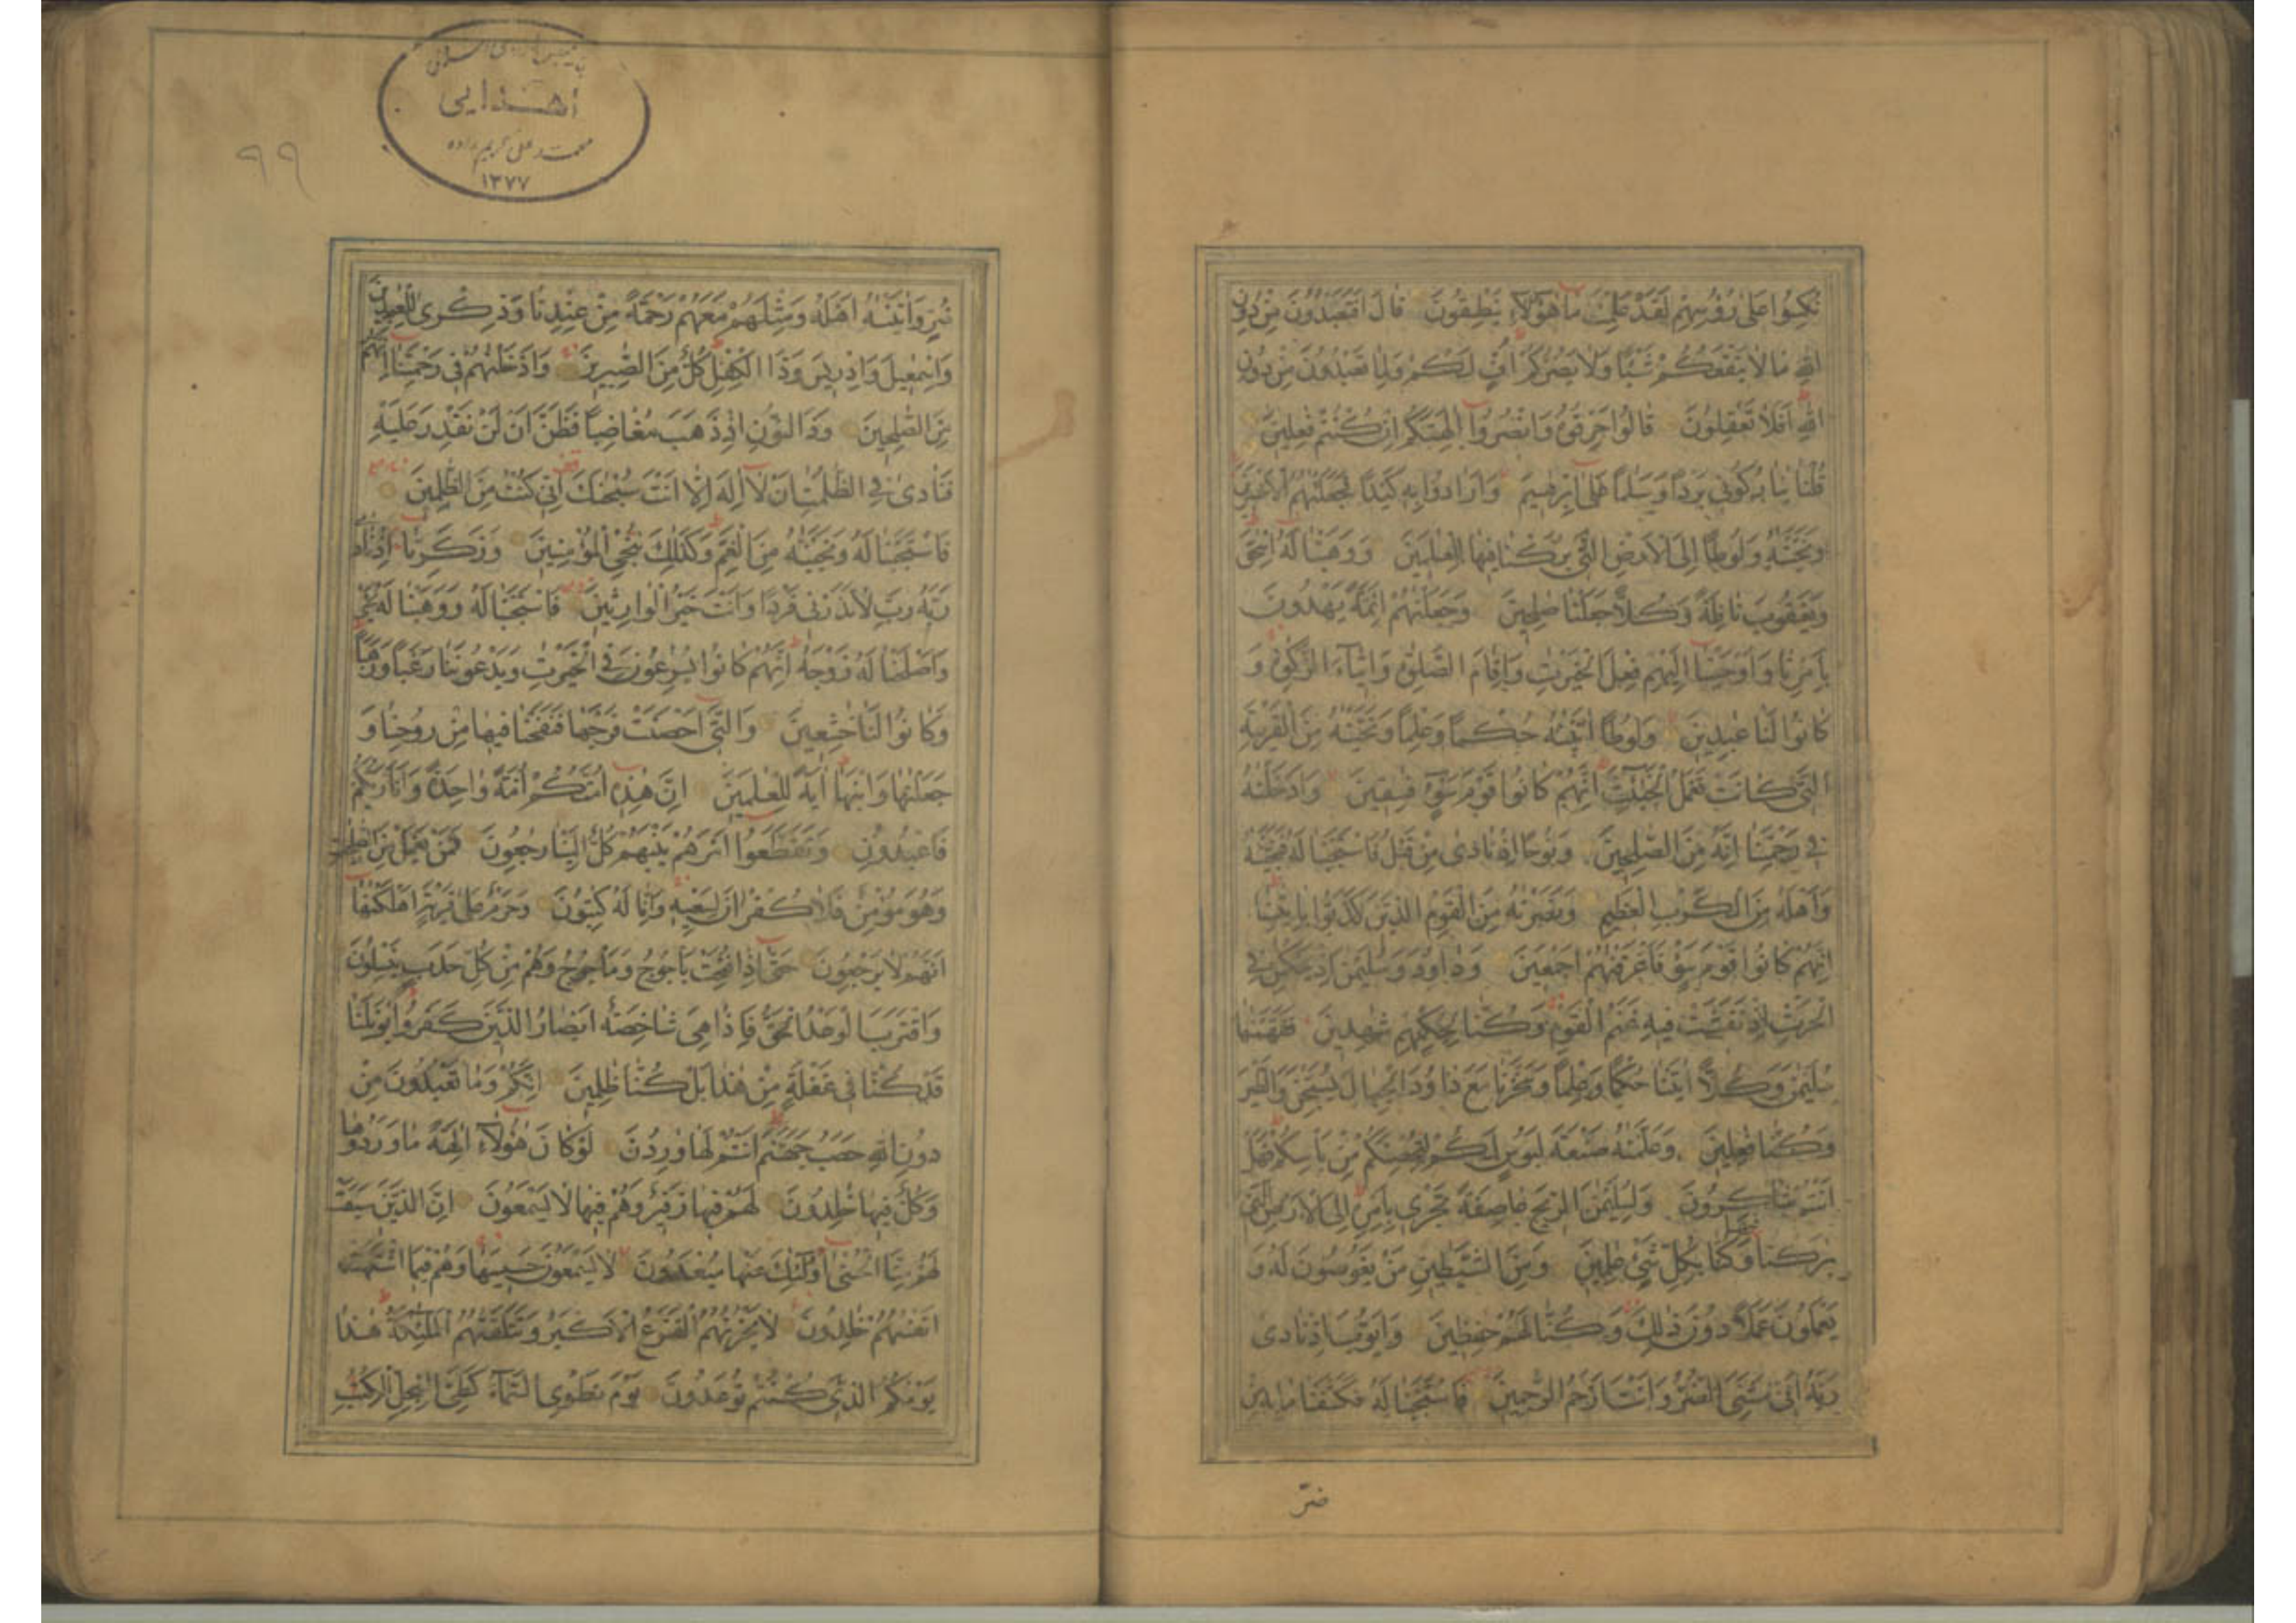 نُكِسُوا عَلٰى رُؤُسِهِمْ لَقَدْ عَلِمْتَ مَا هٰؤُلَاءِ يَنْطِقُونَ قَالَ اَفَتَعْبُدُونَ مِنْ دُونِ
اللّٰهِ مَا لَا يَنْفَعُكُمْ شَيْئًا وَلَا يَضُرُّكُمْ اُفٍّ لَكُمْ وَلِمَا تَعْبُدُونَ مِنْ دُونِ
اللّٰهِ اَفَلَا تَعْقِلُونَ قَالُوا حَرِّقُوهُ وَانْصُرُوا اٰلِهَتَكُمْ اِنْ كُنْتُمْ فٰعِلِينَ
قُلْنَا يَا نَارُ كُونِي بَرْدًا وَسَلٰمًا عَلٰى اِبْرٰهِيمَ وَاَرَادُوا بِهِ كَيْدًا فَجَعَلْنٰهُمُ الْاَخْسَرِينَ
وَنَجَّيْنٰهُ وَلُوطًا اِلَى الْاَرْضِ الَّتِي بٰرَكْنَا فِيهَا لِلْعٰلَمِينَ وَوَهَبْنَا لَهُ اِسْحٰقَ
وَيَعْقُوبَ نَافِلَةً وَكُلًّا جَعَلْنَا صٰلِحِينَ وَجَعَلْنٰهُمْ اَئِمَّةً يَهْدُونَ
بِاَمْرِنَا وَاَوْحَيْنَا اِلَيْهِمْ فِعْلَ الْخَيْرٰتِ وَاِقَامَ الصَّلٰوةِ وَاِيتَاءَ الزَّكٰوةِ وَ
كَانُوا لَنَا عٰبِدِينَ وَلُوطًا اٰتَيْنٰهُ حُكْمًا وَعِلْمًا وَنَجَّيْنٰهُ مِنَ الْقَرْيَةِ
الَّتِي كَانَتْ تَعْمَلُ الْخَبٰئِثَ اِنَّهُمْ كَانُوا قَوْمَ سَوْءٍ فٰسِقِينَ وَاَدْخَلْنٰهُ
فِي رَحْمَتِنَا اِنَّهُ مِنَ الصّٰلِحِينَ وَنُوحًا اِذْ نَادٰى مِنْ قَبْلُ فَاسْتَجَبْنَا لَهُ فَنَجَّيْنٰهُ
وَاَهْلَهُ مِنَ الْكَرْبِ الْعَظِيمِ وَنَصَرْنٰهُ مِنَ الْقَوْمِ الَّذِينَ كَذَّبُوا بِاٰيٰتِنَا
اِنَّهُمْ كَانُوا قَوْمَ سَوْءٍ فَاَغْرَقْنٰهُمْ اَجْمَعِينَ وَدَاوُدَ وَسُلَيْمٰنَ اِذْ يَحْكُمٰنِ فِي
الْحَرْثِ اِذْ نَفَشَتْ فِيهِ غَنَمُ الْقَوْمِ وَكُنَّا لِحُكْمِهِمْ شٰهِدِينَ فَفَهَّمْنٰهَا
سُلَيْمٰنَ وَكُلًّا اٰتَيْنَا حُكْمًا وَعِلْمًا وَسَخَّرْنَا مَعَ دَاوُدَ الْجِبَالَ يُسَبِّحْنَ وَالطَّيْرَ
وَكُنَّا فٰعِلِينَ وَعَلَّمْنٰهُ صَنْعَةَ لَبُوسٍ لَكُمْ لِتُحْصِنَكُمْ مِنْ بَاْسِكُمْ فَهَلْ
اَنْتُمْ شَاكِرُونَ وَلِسُلَيْمٰنَ الرِّيحَ عَاصِفَةً تَجْرِي بِاَمْرِهِ اِلَى الْاَرْضِ الَّتِي
بٰرَكْنَا فِيهَا وَكُنَّا بِكُلِّ شَيْءٍ عٰلِمِينَ وَمِنَ الشَّيٰطِينِ مَنْ يَغُوصُونَ لَهُ وَ
يَعْمَلُونَ عَمَلًا دُونَ ذٰلِكَ وَكُنَّا لَهُمْ حٰفِظِينَ وَاَيُّوبَ اِذْ نَادٰى
رَبَّهُ اَنِّي مَسَّنِيَ الضُّرُّ وَاَنْتَ اَرْحَمُ الرّٰحِمِينَ فَاسْتَجَبْنَا لَهُ فَكَشَفْنَا مَا بِهِ مِنْ
ضُرٍّ
اهدایی
محمد علی کریم زاده
۱۳۷۷
۹۹
ضُرٍّ وَاٰتَيْنٰهُ اَهْلَهُ وَمِثْلَهُمْ مَعَهُمْ رَحْمَةً مِنْ عِنْدِنَا وَذِكْرٰى لِلْعٰبِدِينَ
وَاِسْمٰعِيلَ وَاِدْرِيسَ وَذَا الْكِفْلِ كُلٌّ مِنَ الصّٰبِرِينَ وَاَدْخَلْنٰهُمْ فِي رَحْمَتِنَا اِنَّهُمْ
مِنَ الصّٰلِحِينَ وَذَا النُّونِ اِذْ ذَهَبَ مُغَاضِبًا فَظَنَّ اَنْ لَنْ نَقْدِرَ عَلَيْهِ
فَنَادٰى فِي الظُّلُمٰتِ اَنْ لَا اِلٰهَ اِلَّا اَنْتَ سُبْحٰنَكَ اِنِّي كُنْتُ مِنَ الظّٰلِمِينَ
فَاسْتَجَبْنَا لَهُ وَنَجَّيْنٰهُ مِنَ الْغَمِّ وَكَذٰلِكَ نُنْجِي الْمُؤْمِنِينَ وَزَكَرِيَّا اِذْ نَادٰى
رَبَّهُ رَبِّ لَا تَذَرْنِي فَرْدًا وَاَنْتَ خَيْرُ الْوَارِثِينَ فَاسْتَجَبْنَا لَهُ وَوَهَبْنَا لَهُ يَحْيٰى
وَاَصْلَحْنَا لَهُ زَوْجَهُ اِنَّهُمْ كَانُوا يُسٰرِعُونَ فِي الْخَيْرٰتِ وَيَدْعُونَنَا رَغَبًا وَرَهَبًا
وَكَانُوا لَنَا خٰشِعِينَ وَالَّتِي اَحْصَنَتْ فَرْجَهَا فَنَفَخْنَا فِيهَا مِنْ رُوحِنَا وَ
جَعَلْنٰهَا وَابْنَهَا اٰيَةً لِلْعٰلَمِينَ اِنَّ هٰذِهِ اُمَّتُكُمْ اُمَّةً وَاحِدَةً وَاَنَا رَبُّكُمْ
فَاعْبُدُونِ وَتَقَطَّعُوا اَمْرَهُمْ بَيْنَهُمْ كُلٌّ اِلَيْنَا رٰجِعُونَ فَمَنْ يَعْمَلْ مِنَ الصّٰلِحٰتِ
وَهُوَ مُؤْمِنٌ فَلَا كُفْرَانَ لِسَعْيِهِ وَاِنَّا لَهُ كٰتِبُونَ وَحَرٰمٌ عَلٰى قَرْيَةٍ اَهْلَكْنٰهَا
اَنَّهُمْ لَا يَرْجِعُونَ حَتّٰى اِذَا فُتِحَتْ يَاْجُوجُ وَمَاْجُوجُ وَهُمْ مِنْ كُلِّ حَدَبٍ يَنْسِلُونَ
وَاقْتَرَبَ الْوَعْدُ الْحَقُّ فَاِذَا هِيَ شَاخِصَةٌ اَبْصَارُ الَّذِينَ كَفَرُوا يٰوَيْلَنَا
قَدْ كُنَّا فِي غَفْلَةٍ مِنْ هٰذَا بَلْ كُنَّا ظٰلِمِينَ اِنَّكُمْ وَمَا تَعْبُدُونَ مِنْ
دُونِ اللّٰهِ حَصَبُ جَهَنَّمَ اَنْتُمْ لَهَا وٰرِدُونَ لَوْ كَانَ هٰؤُلَاءِ اٰلِهَةً مَا وَرَدُوهَا
وَكُلٌّ فِيهَا خٰلِدُونَ لَهُمْ فِيهَا زَفِيرٌ وَهُمْ فِيهَا لَا يَسْمَعُونَ اِنَّ الَّذِينَ سَبَقَتْ
لَهُمْ مِنَّا الْحُسْنٰى اُولٰئِكَ عَنْهَا مُبْعَدُونَ لَا يَسْمَعُونَ حَسِيسَهَا وَهُمْ فِيمَا اشْتَهَتْ
اَنْفُسُهُمْ خٰلِدُونَ لَا يَحْزُنُهُمُ الْفَزَعُ الْاَكْبَرُ وَتَتَلَقّٰهُمُ الْمَلٰئِكَةُ هٰذَا
يَوْمُكُمُ الَّذِي كُنْتُمْ تُوعَدُونَ يَوْمَ نَطْوِي السَّمَاءَ كَطَيِّ السِّجِلِّ لِلْكُتُبِ